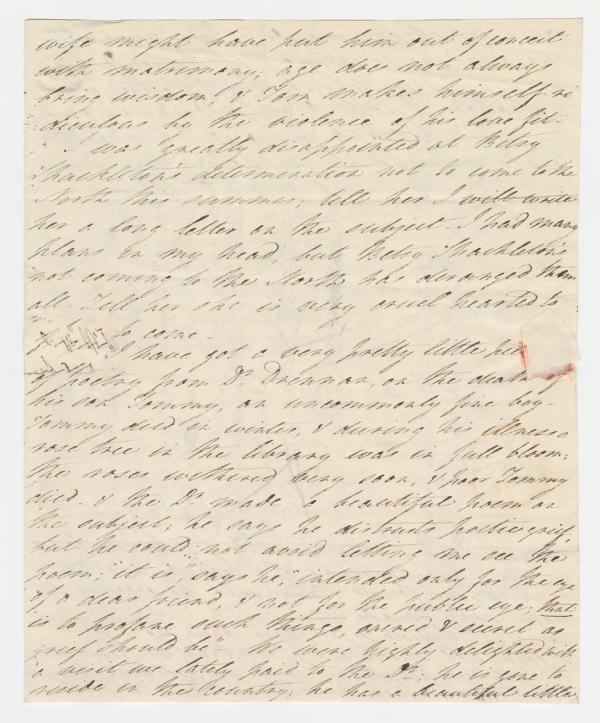 wife might have put him out of conceit
with matrimony; age does not always
bring wisdom! & Tom makes himself ri
-diculous by the violence of his love fit.
I was greatly disappointed at Betsy
Shackleton's determination not to come to the
North this summer; tell her I will write
her a long letter on the subject. I had many
plans in my head, but Betsy Shackleton's
not coming to the North has deranged them
all. Tell her she is very cruel hearted to
to come.
I have got a very pretty little
of poetry from Dr. Drennan, on the death of
his son Tommy, an uncommonly fine boy-
Tommy died in winter, & during his illness a
rose tree in the library was in full bloom;
the roses withered very soon, & poor Tommy
died. & the Dr made a beautiful poem on
the subject; he says he distrusts poetic grief
but he could not avoid letting me see the
poem; "it is", says he, "intended only for the eye
of a dear friend, & not for the public eye; that
is to profane such things, sacred & secret as
grief should be" We were highly delighted with
a visit we lately paid to the Dr.; he is gone to
reside in the country; he has a beautiful little